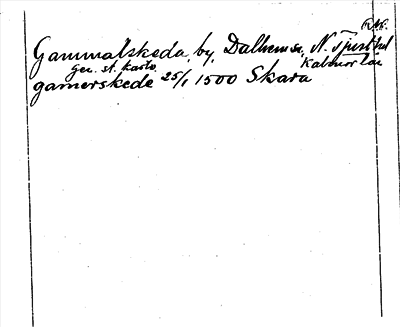 Gammalskeda, by, Dalhem sn, N. Tjust hd
Gen. st. karta Kalmar län
gamerskede 25/1 1500 Skara